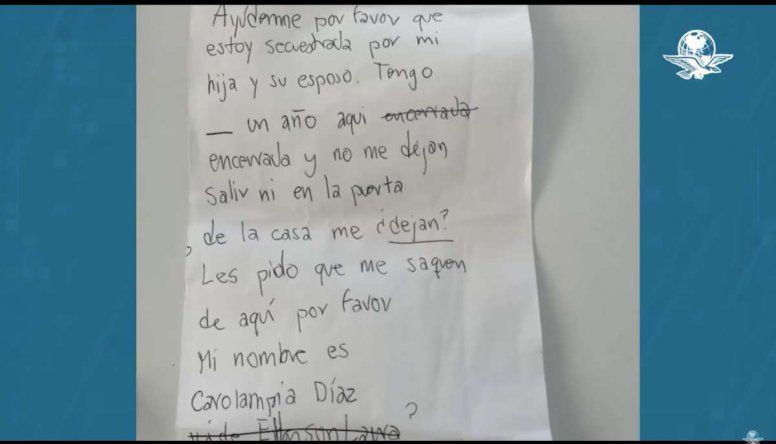 Ayúdenme por favor que
estoy secuestrada por mi
hija y su esposo. Tengo
_ un año aqui encerrada
encerrada y no me dejan
salir ni en la puerta
, de la casa me ¿dejan?
Les pido que me saquen
de aquí por favor
Mi nombre es
Carolampia Díaz
?